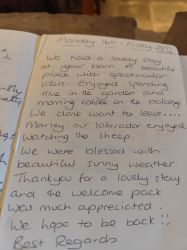 Monday 16th - Friday 20th
We had a lovely stay
at your barn. A beautiful
place with spectacular
views. Enjoyed spending
time in the garden and
morning coffee on the balcony.
We dont want to leave....
Marley our labrador enjoyed
watching the sheep.
We were blessed with
beautiful sunny weather
Thankyou for a lovely stay
and the welcome pack
was much appreciated.
We hope to be back!!
Best Regards